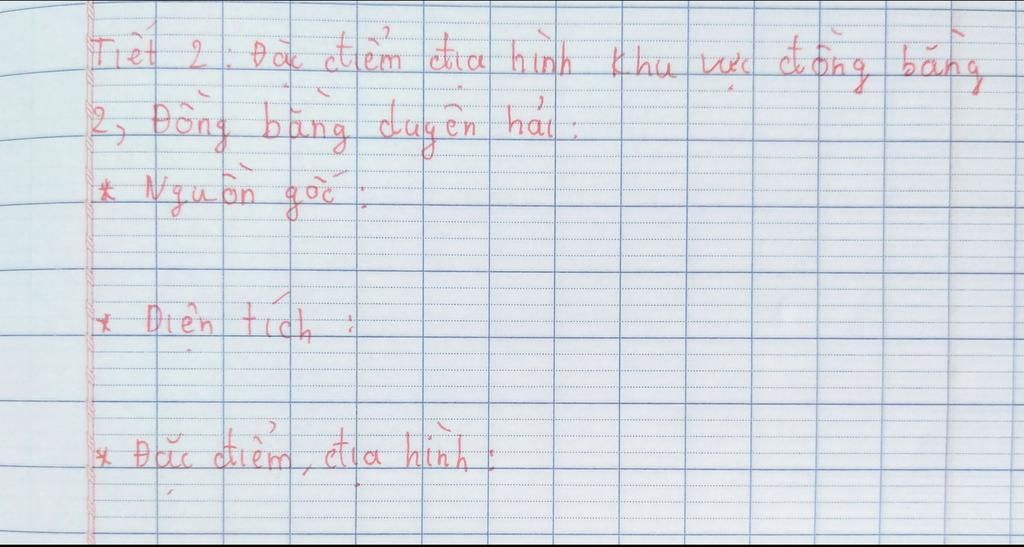 Tiết 2: Đặc điểm địa hình khu vực đồng bằng
2, Đồng bằng duyên hải:
* Nguồn gốc:
* Diện tích:
* Đặc điểm, địa hình: